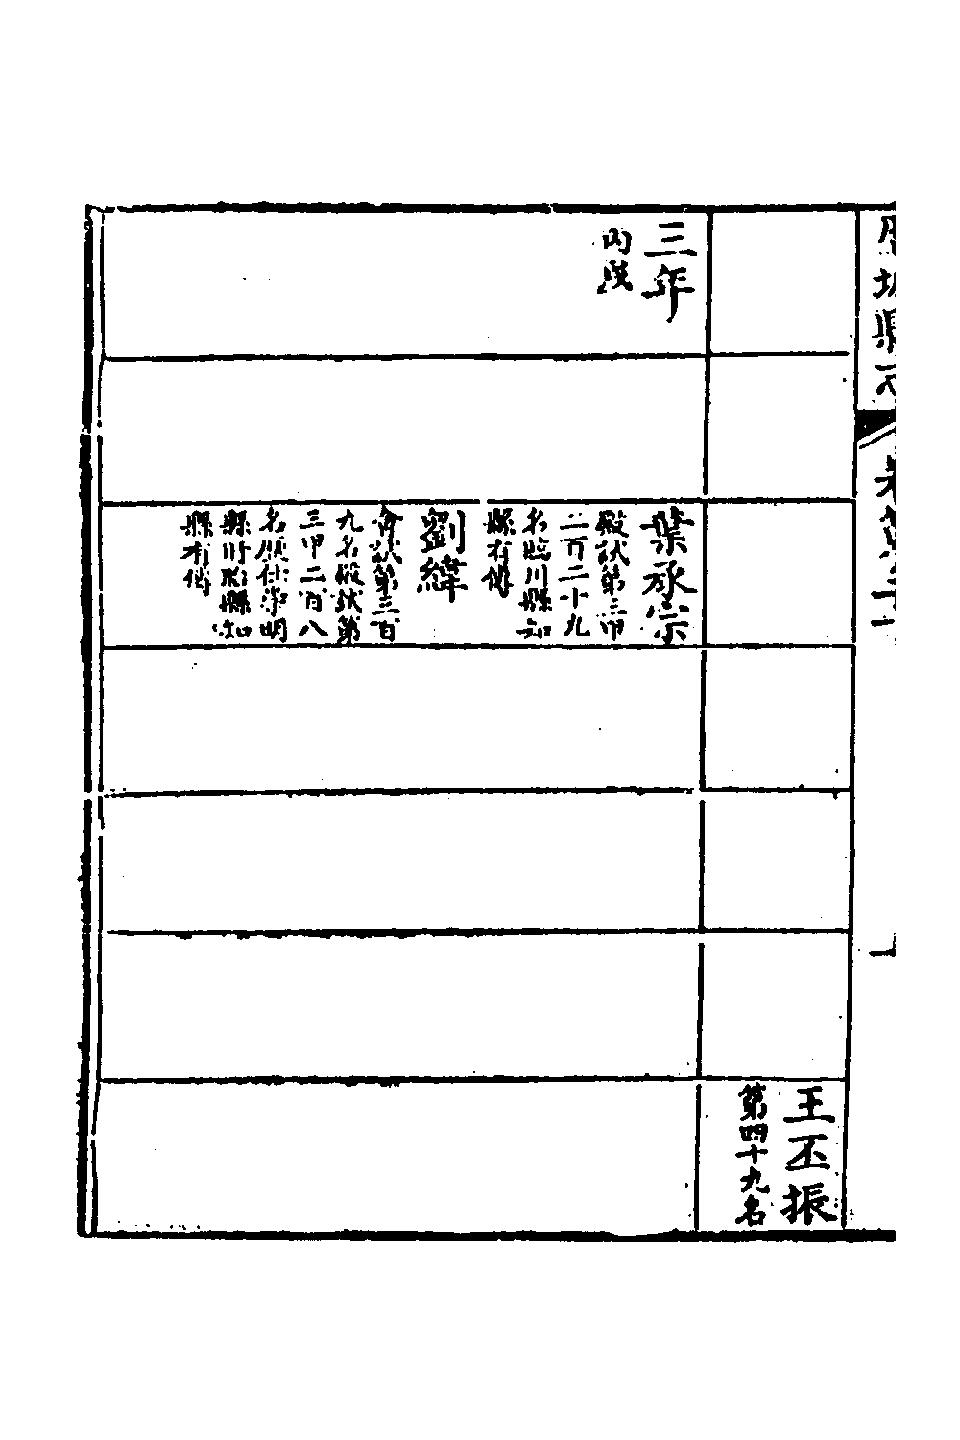 歷城縣志
王丕振
第四十九名
三年
丙戌
葉承宗
殿試第三甲
二百二十九
名臨川縣知
縣有傳
劉緯
會試第三百
九名殿試第
三甲二百八
名歷仕崇明
縣盱眙縣知
縣有傳